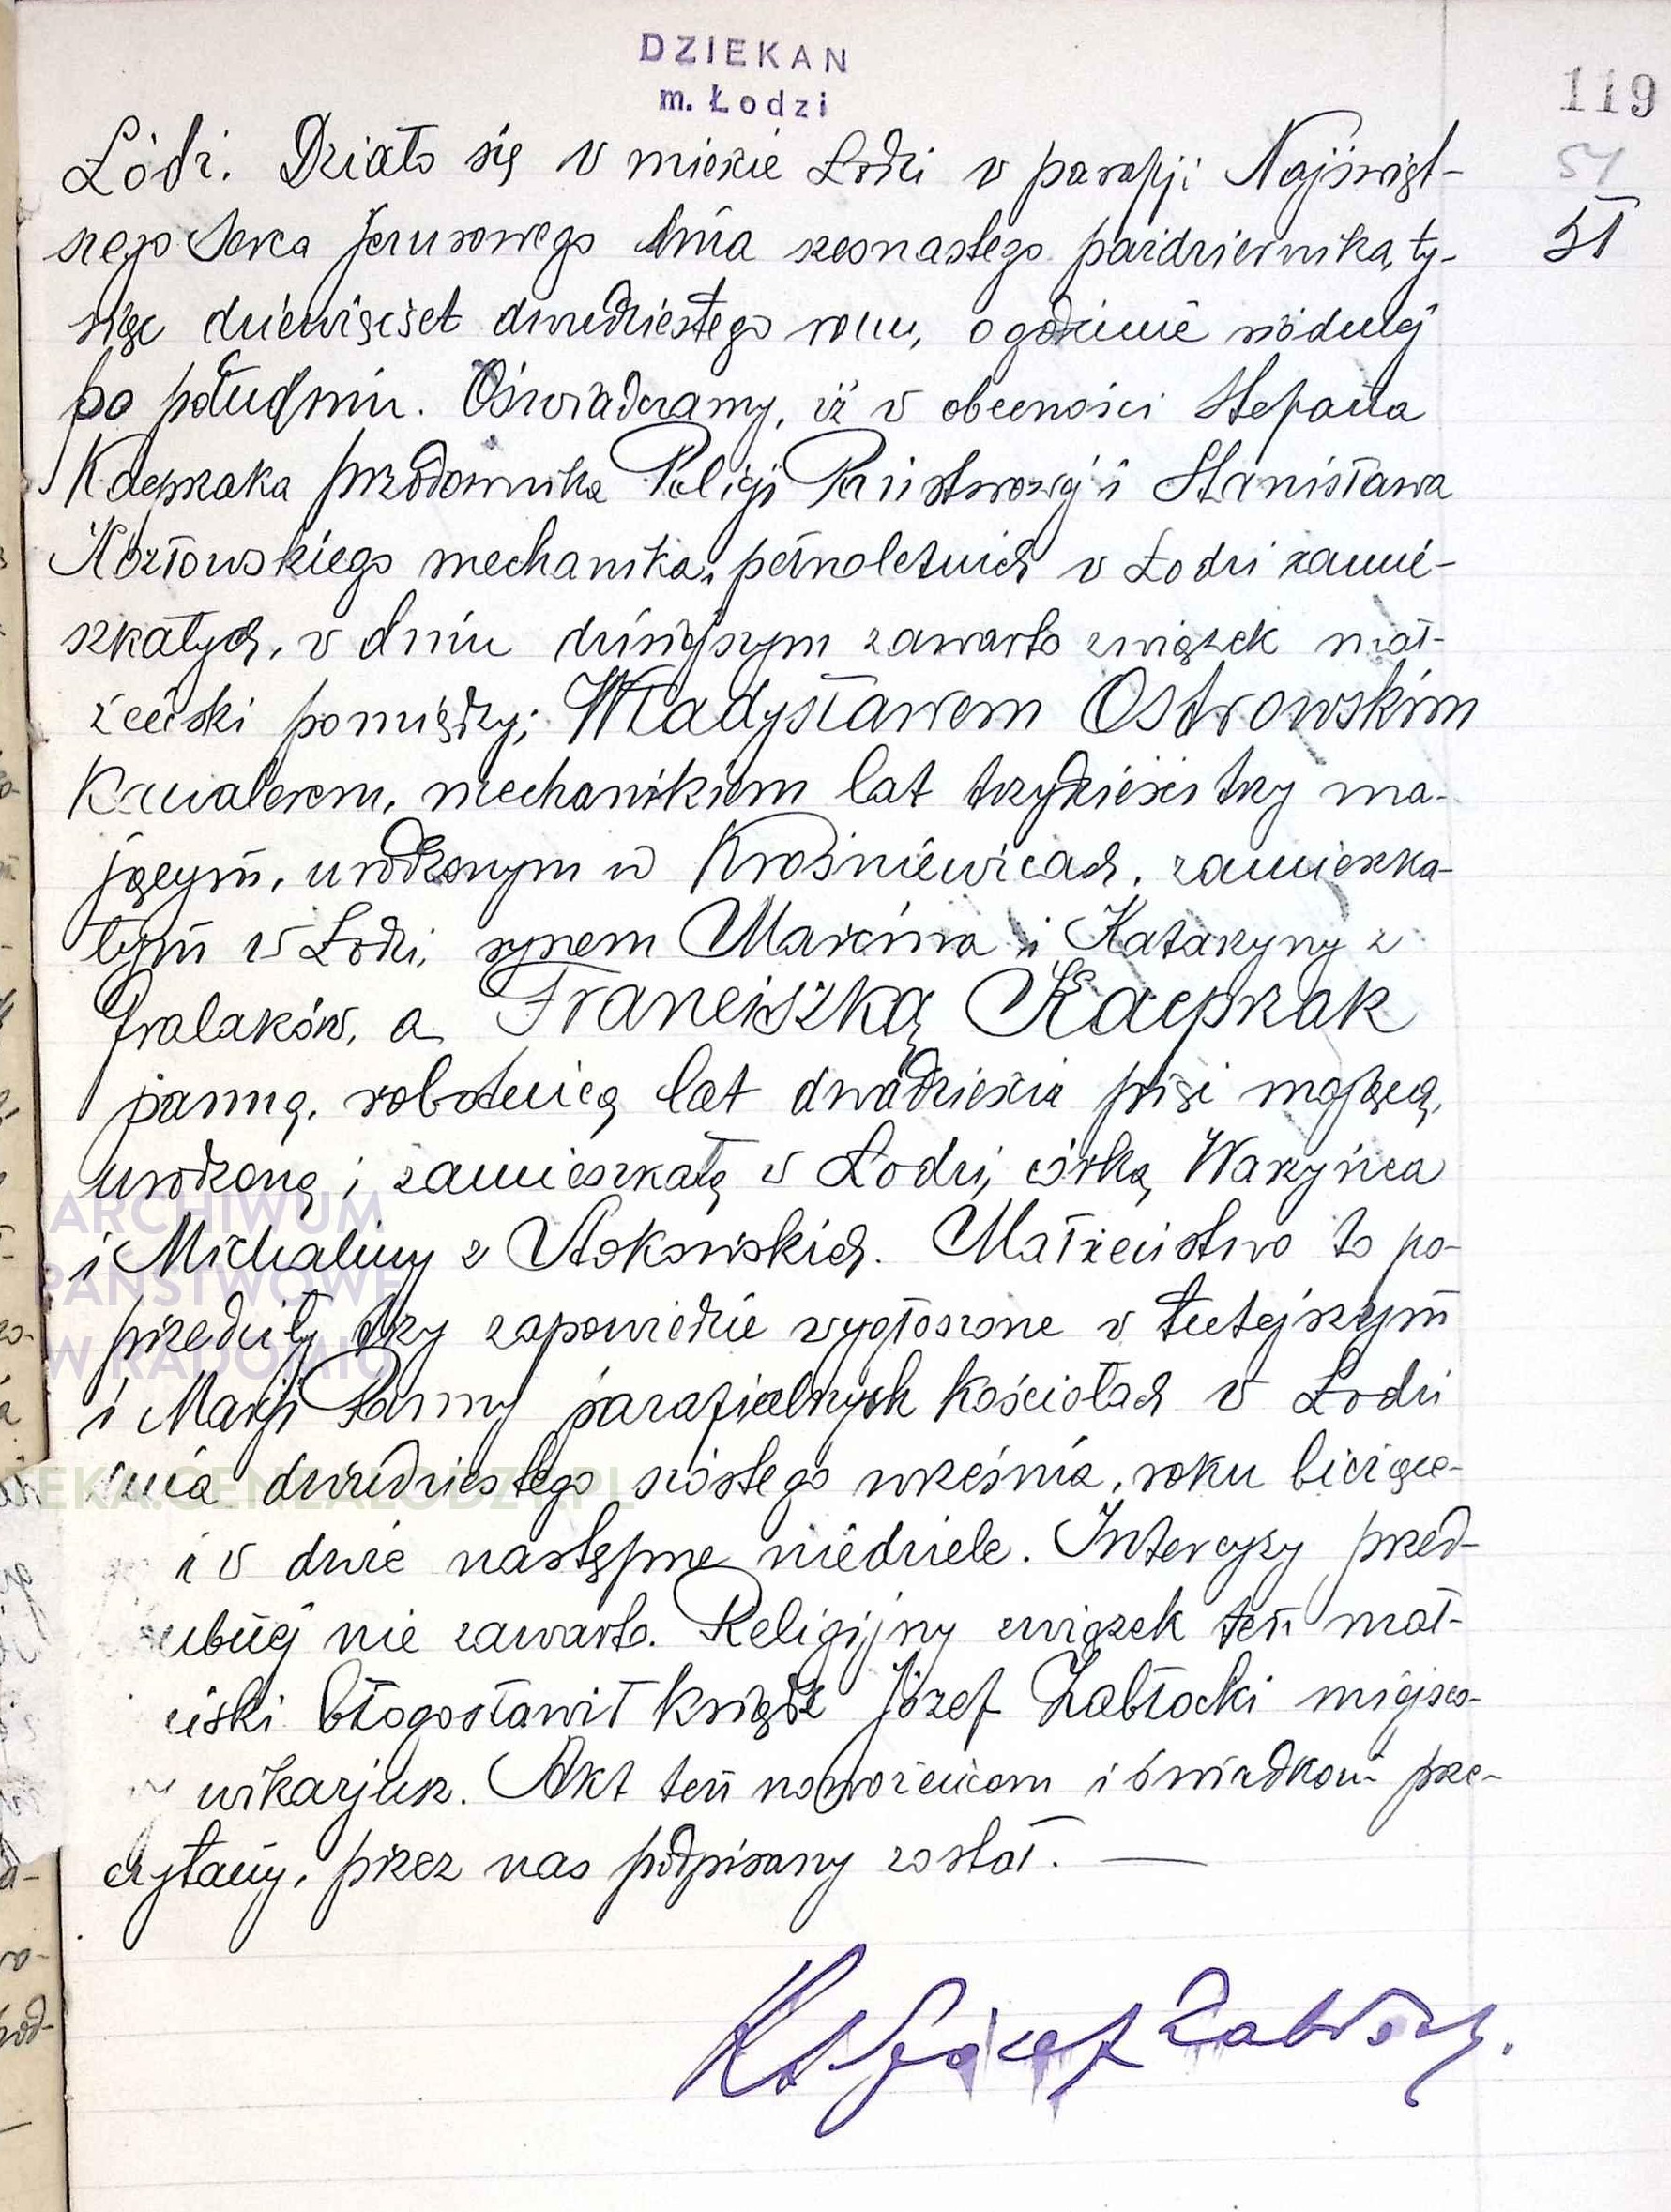 DZIEKAN
m. Łodzi
119
51
51
Łódź. Działo się w mieście Łodzi w parafji Najświęt-
szego Serca Jezusowego dnia szesnastego października, ty-
siąc dziewięćset dwudziestego roku, o godzinie siódmej
po południu. Oświadczamy, iż w obecności Stefana
Kacprzaka przodownika Policji Państwowej i Stanisława
Kozłowskiego mechanika, pełnoletnich w Łodzi zamie-
szkałych, w dniu dzisiejszym zawarto związek mał-
żeński pomiędzy; Władysławem Ostrowskim
kawalerem, mechanikiem lat trzydzieści trzy ma-
jącym, urodzonym w Krośniewicach, zamieszka-
łym w Łodzi, synem Marcina i Katarzyny z
Gralaków, a Franciszką Kacprzak
panną, robotnicą lat dwadzieścia pięć mającą,
urodzoną i zamieszkałą w Łodzi, córką Wawrzyńca
i Michaliny z Stokowskich. Małżeństwo to po-
przedziły trzy zapowiedzie wygłoszone w tutejszym
i Marji Panny parafialnych kościołach w Łodzi
dnia dwudziestego szóstego września, roku bieżące-
i w dwie następne niedziele. Intercyzy przed-
ślubnej nie zawarto. Religijny związek ten mał-
eński błogosławił ksiądz Józef Zabłocki miejsco-
wikarjusz. Akt ten nowożeńcom i świadkom prze-
czytany, przez nas podpisany został. —
Ks Józef Zabłocki.
ARCHIWUM
PAŃSTWOWE
W RADOMIU
EKA.GENEALODZY.PL